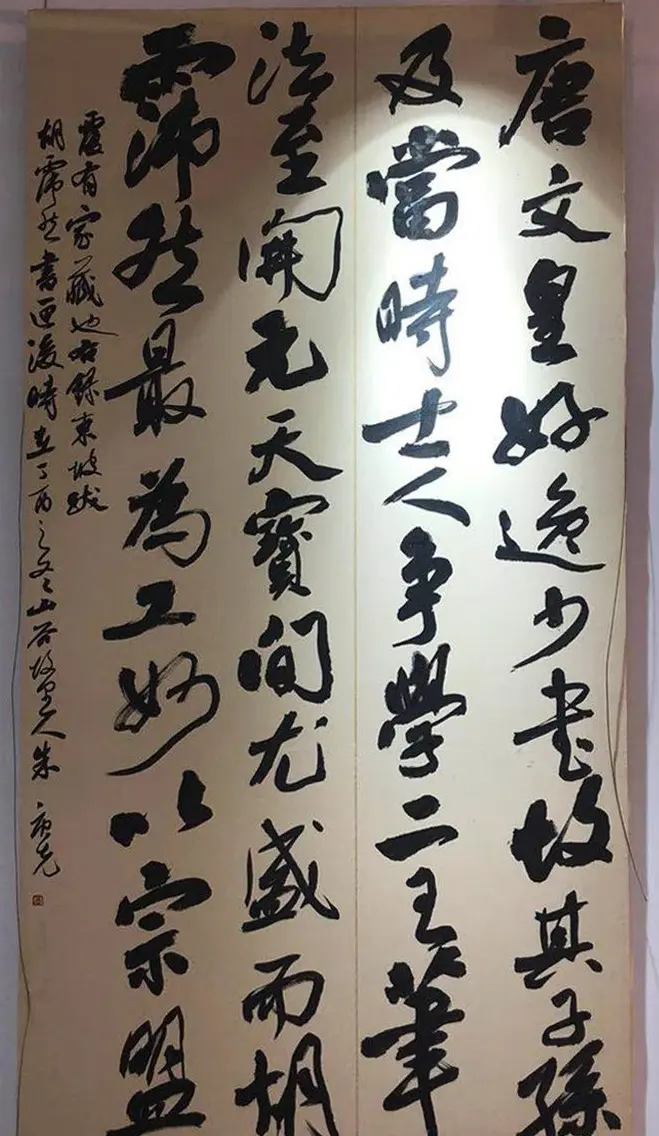 唐文皇好逸少书故其子孫
及當時士人争學二王筆
法至開元天寶間尤盛而胡
霈然最為工妙以宗盟
覆有家藏也右錄東坡跋
胡霈然書匣後時在丁酉之冬山谷故里人朱